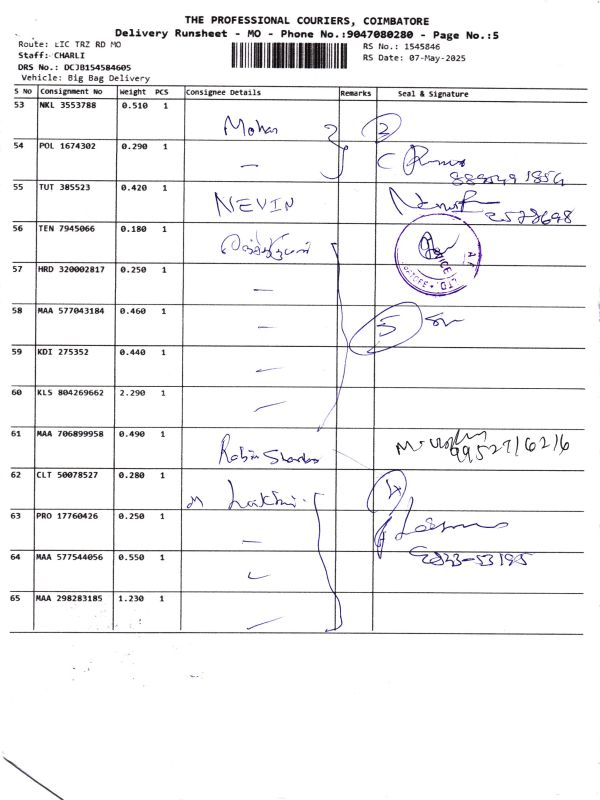 THE PROFESSIONAL COURIERS, COIMBATORE
Delivery Runsheet - MO - Phone No.:9047080280 - Page No.:5
Route: LIC TRZ RD MO
RS No.: 1545846
Staff: CHARLI
RS Date: 07-May-2025
DRS No.: DCJB154584605
Vehicle: Big Bag Delivery
S No Consignment No Weight PCS Consignee Details Remarks Seal & Signature
53 NKL 3553788 0.510 1
Mohan 2
54 POL 1674302 0.290 1
—
55 TUT 385523 0.420 1
NEVIN
56 TEN 7945066 0.180 1
57 HRD 320002817 0.250 1
—
58 MAA 577043184 0.460 1
— 5
59 KDI 275352 0.440 1
—
60 KLS 804269662 2.290 1
—
61 MAA 706899958 0.490 1
9952716216
62 CLT 50078527 0.280 1
4
63 PRO 17760426 0.250 1
—
64 MAA 577544056 0.550 1
65 MAA 298283185 1.230 1
—